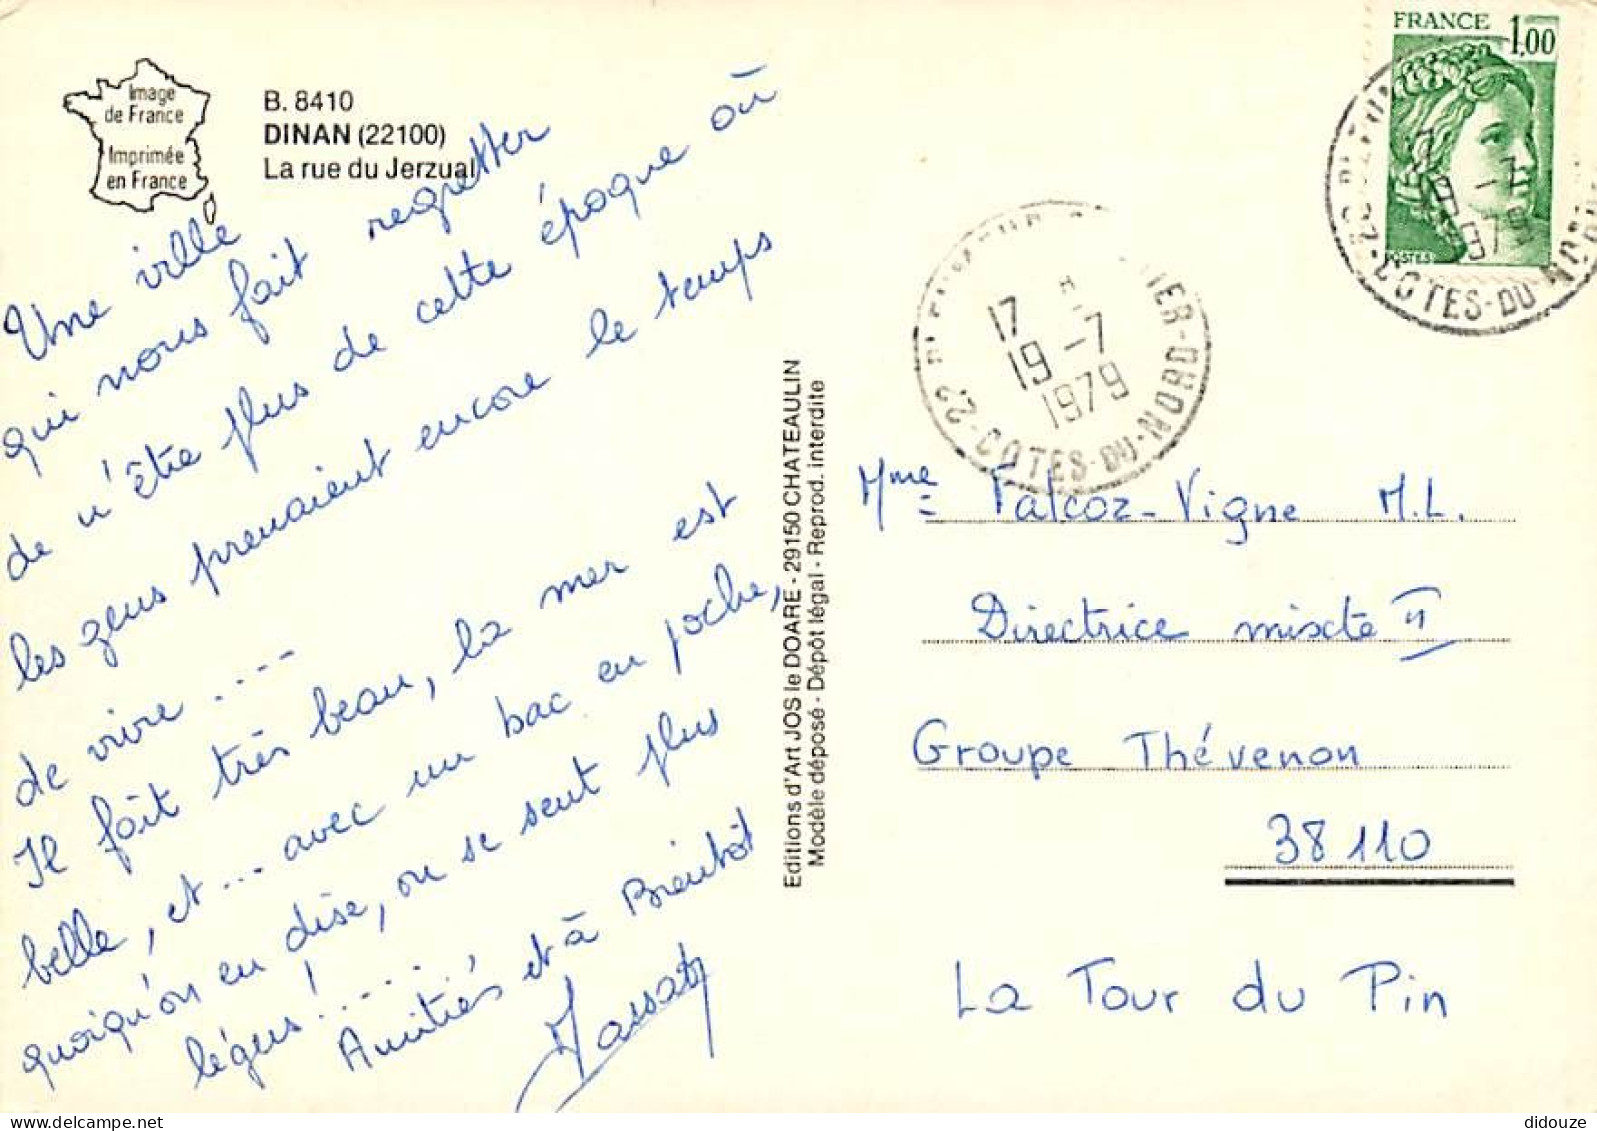 Image
de France
Imprimée
en France
B. 8410
DINAN (22100)
La rue du Jerzual
Une ville
qui nous fait regretter
de n'être plus de cette époque où
les gens prenaient encore le temps
de vivre ....
Il fait très beau, la mer est
belle, et ... avec un bac en poche,
quoiqu'on en dise, on se sent plus
légers ! ......
Amitiés et à Bientôt
Editions d'Art JOS le DOARE - 29150 CHATEAULIN
Modèle déposé - Dépôt légal - Reprod. interdite
FRANCE 1,00
POSTES
19 -7
1979
22 - COTES-DU-NORD
17
19 -7
1979
22 - COTES-DU-NORD
Mme Falcoz-Vigne M.L.
Directrice mixte II
Groupe Thévenon
38110
La Tour du Pin
didouze